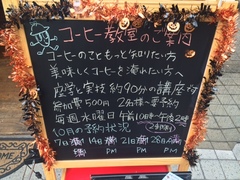 コーヒー教室のご案内
コーヒーのこともっと知りたい方
美味しくコーヒーを淹れたい方へ
座学と実技 約90分の講座です
参加費 500円 2名様〜要予約
毎週水曜日 午前10時〜 午後2時〜
10月の予約状況 ご予約制
7日 14日 21日 28日
PM PM PM